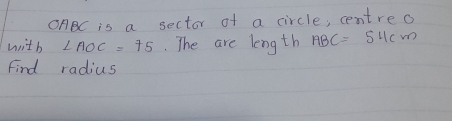 OABC is a sector of a circle, centre O
with ∠AOC = 75. The arc length ABC = 54cm
Find radius